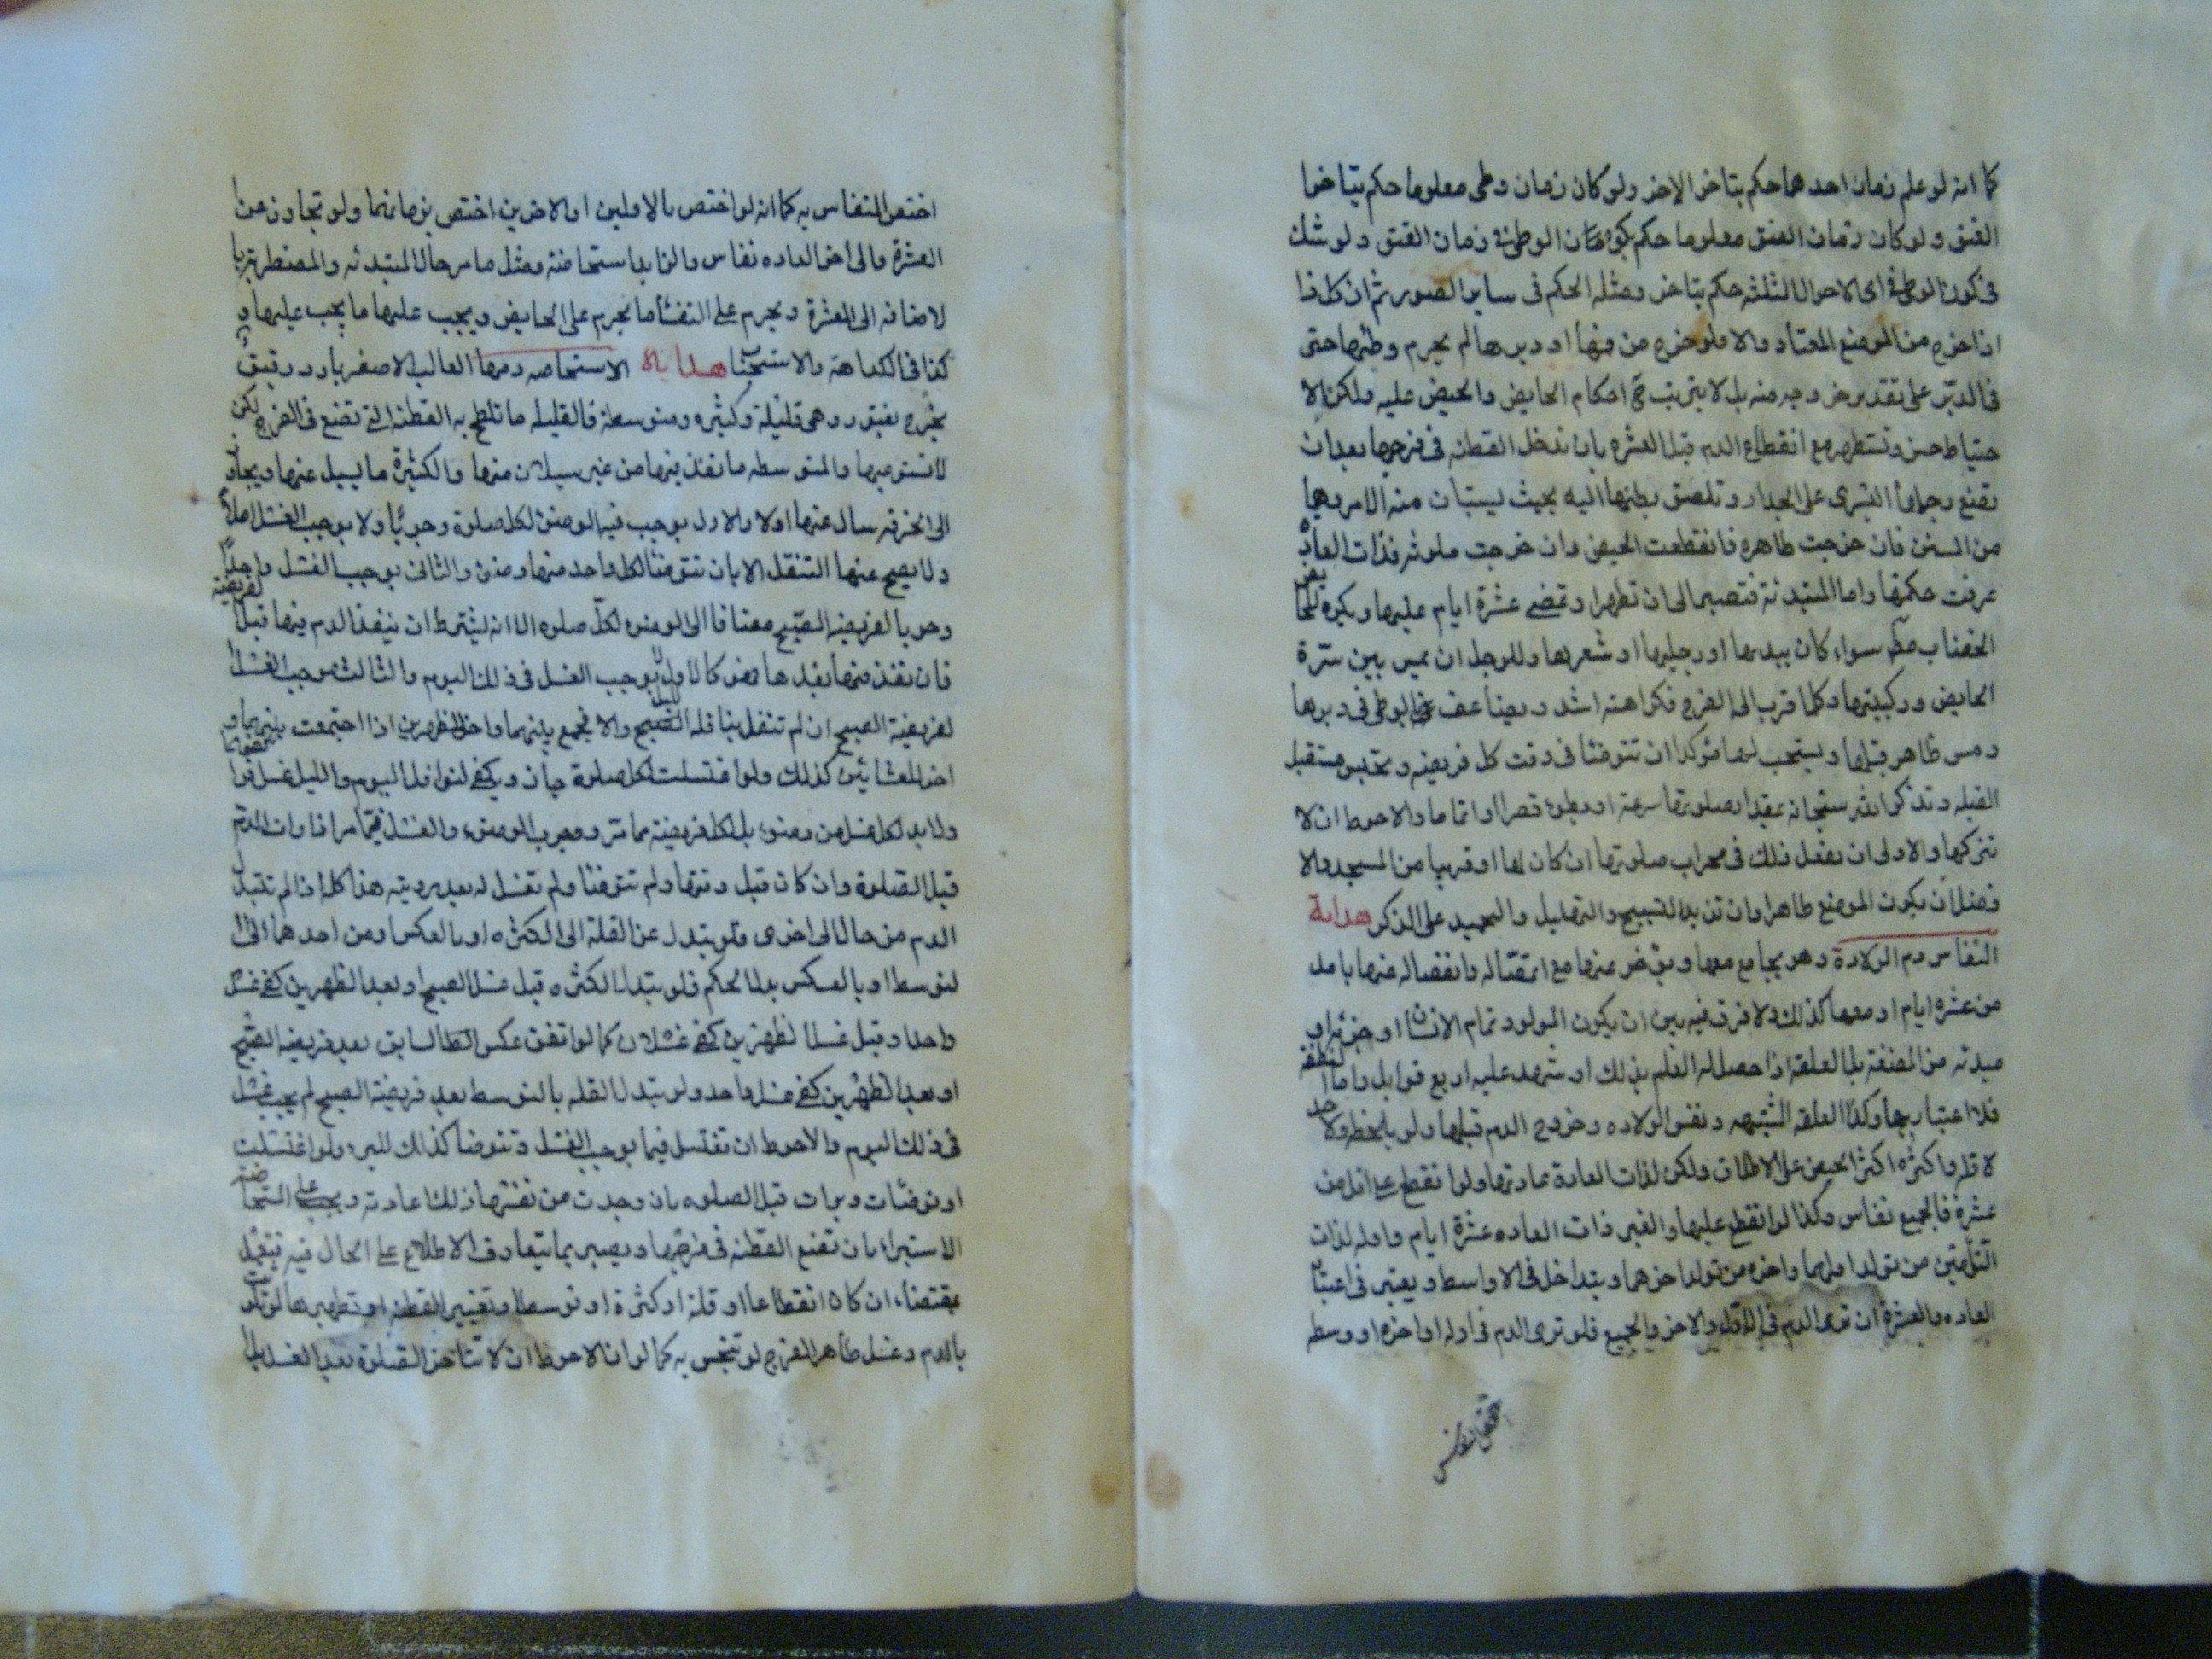 كما انه لو علم زمان احدهما حكم بتاخر الاخر ولو كان زمان وطى معلوما حكم بتاخر
العتق ولو كان زمان العتق معلوما حكم بكون الوطى فى زمان العتق ولو شك
فى كون الوطى فى اى الاحوال الثلثه حكم بتاخر ومثله الحكم فى ساير الصور ثم ان كل ذا
اذا خرج من الموضع المعتاد والا فلو خرج من فمها او دبرها لم يحرم وطئها حتى
فى الدبر على تقدير خروجه منه بل لا يترتب احكام الحايض والحيض عليه ولكن الا
حتياط حسن وتستظهر مع انقطاع الدم قبل العشره بان تدخل القطنه فى فرجها بعد ان
تضع رجلها اليسرى على الجدار وتلصق بطنها اليه بحيث يستبان منه الامر وهما
من السنن فان خرجت طاهره فانقطعت الحيض وان خرجت ملوثه فذات العاده
عرفت حكمها واما المبتدئه فتصبر الى ان تطهر او تمضى عشرة ايام عليها ويكره للحايض
الخضاب سواء كان بيديها او رجليها او شعرها وللرجل ان يمس بين سترة
الحايض وركبتيها وكلما قرب الى الفرج فكراهته اشد ويضاعف الوطى فى دبرها
ومس ظاهر قبلها ويستحب لها مؤكدا ان تتوضا فى وقت كل فريضه وتجلس مستقبل
القبله وتذكر الله سبحانه بمقدار صلوتها سرعة او بطوء قصرا او اتماما والاحوط ان لا
تتركها والاولى ان تفعل ذلك فى محراب صلوتها ان كان لها او قريبا من المسجد والا
فضل ان يكون الموضع طاهرا وان تزيد التسبيح والتهليل والتحميد على الذكر هداية
النفاس دم الولادة وهو يجامع معها ويتاخر عنها مع اتصاله وانفصاله عنها باقل
من عشره ايام او معها كذلك ولا فرق فيه بين ان يكون المولود تمام الانسان او جزئه او
مبدئه من المضغة بل العلقه اذا حصل له العلم بذلك او شهد عليه اربع قوابل واما النطفة
فلا اعتبار بها وكذا العلقه المشتبهه ونفس الولاده وخروج الدم قبلها ولو بلحظه ولا حد
لاقله واكثره اكثر الحيض على الاطلاق ولكن لذات العادة عادتها ولو انقطع على اقل من
عشرة فالجميع نفاس وكذا لو انقطع عليها والغير ذات العاده عشرة ايام واوله لذات
التوأمين من تولد اولهما واخره من تولد اخرهما ويتداخل فى الاواسط ويعتبر فى اعتبار
العاده والعشرة ان ترى الدم فى الاول والاخر والجميع فلو ترى الدم فى اوله او اخره او وسطه
اختص النفاس
اختص النفاس به كما انه لو اختص بالاولين او الاخرين اختص بزمانهما ولو تجاوز عن
العشرة فالى اخر العاده نفاس والزايد استحاضه ومثل ما مر حال المبتدئه والمضطربه با
لاضافه الى العشرة ويحرم على النفساء ما يحرم على الحايض ويجب عليها ما يجب عليها و
كذا فى الكراهة والاستحباب هداية الاستحاضه دمها الغالب الاصفر بارد رقيق
يخرج بفتور وهى قليلة وكثيره ومتوسطه فالقليله ما تلطخ به القطنه التى تضع فى الفرج لكن
لا تستوعبها والمتوسطه ما نفذ فيها من غير سيلان منها والكثيرة ما يسيل عنها ويجاوز
الى الخرقه سال عنها او لا والاول يوجب فيه الوضوء لكل صلوة وجوبا ولا يوجب الغسل اصلا
ولا يصح عنها التنفل الا بان تتوضا لكل واحد منها وضوء والثانى يوجب الغسل واحدا
وجوبا لفريضه الصبح مضافا الى الوضوء لكل صلوه الا انه يشترط ان ينفذ الدم فيها قبل الفريضه
فان نفذ فيها بعدها فهو كالاول لا يوجب الغسل فى ذلك اليوم والثالث موجب الغسل
لفريضة الصبح ان لم تتنفل بنافلة الليل والا فيجمع بينهما واخر للظهرين اذا اجتمعت بينهما و
اخر للعشائين كذلك ولو اغتسلت لكل صلوة جاز ويكفى لنوافل اليوم والليل غسل فرايضهما
ولا بد لكل غسل من وضوء بل لكل فريضه مما مر ووجوب الوضوء والغسل فيما مر اذا وان الدم
قبل الصلوة وان كان قبل وقتها ولم تتوضا ولم تغسل له بعد رويته هذا كله اذا لم تتبدل
الدم من حال الى اخرى فلو تبدل عن القلة الى الكثره او بالعكس ومن احدهما الى ا
لتوسط او بالعكس بدل الحكم فلو تبدل الكثره قبل غسل الصبح او بعد الظهرين كفى غسل
واحد وقبل غسل الظهرين كفى غسلان كما لو اتفق عكس السابق بعد فريضه الصبح
او بعد الظهرين كفى غسل واحد ولو تبدل القله بالتوسط بعد فريضة الصبح لم يجب غسل
فى ذلك اليوم والاحوط ان تغتسل فيما يوجب الغسل وتتوضا كذلك للبرء ولو اغتسلت
او توضئات وبرات قبل الصلوه بان وجدت من نفسها ذلك اعادته ويجب على المستحاضه
الاستبراء بان تضع القطنه فى فرجها وتصبر بما يتعارف الاطلاع على الحال فيه فتعمل
بمقتضاه ان كان انقطاعا او قلة او كثرة او توسطا وتغيير القطنه او تطهيرها لو تلوثت
بالدم وغسل ظاهر الفرج لو تنجس به كما لو ان الاحوط ان لا تتاخر الصلوة بعد الغسل بل